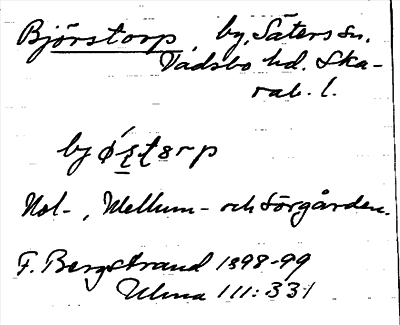 Björstorp, by, Säters sn,
Vadsbo hd. Ska-
rab. l.
bjǿṣṭɘrp
Nol-, Mellum- och Sörgården.
F. Bergstrand 1898-99
Ulma 111:331